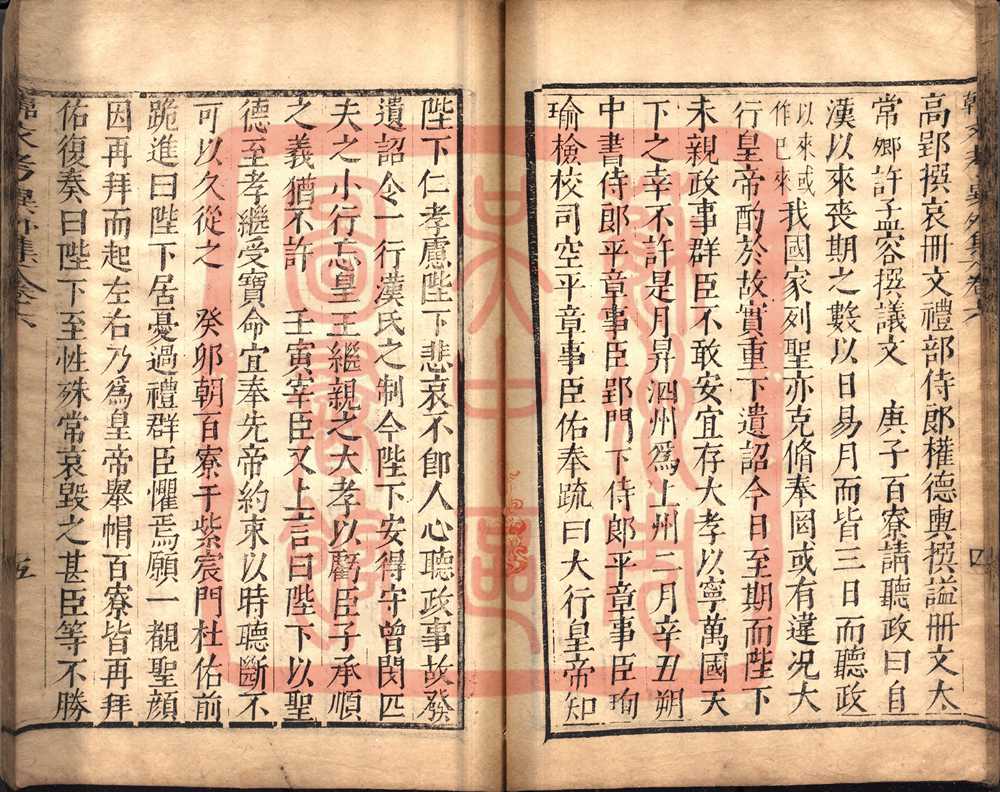 高郢撰哀冊文禮部侍郎權德輿撰謚冊文太
常卿許孟容撰議文　庚子百寮請聽政曰自
漢以來喪期之數以日易月而皆三日而聽政
以來或作巴來我國家列聖亦克脩奉罔或有違况大
行皇帝酌於故實重下遺詔今日至期而陛下
未親政事群臣不敢安宜存大孝以寧萬國天
下之幸不許是月昇泗州爲上州二月辛丑朔
中書侍郎平章事臣郢門下侍郎平章事臣珣
瑜檢校司空平章事臣佑奉疏曰大行皇帝知
陛下仁孝慮陛下悲哀不卽人心聽政事故發
遺詔令一行漢氏之制今陛下安得守曾閔匹
夫之小行忘皇王繼親之大孝以虧臣子承順
之義猶不許　壬寅宰臣又上言曰陛下以聖
德至孝繼受寶命宜奉先帝約束以時聽斷不
可以久從之　癸卯朝百寮于紫宸門杜佑前
跪進曰陛下居憂過禮群臣懼焉願一覩聖顔
因再拜而起左右乃爲皇帝舉帽百寮皆再拜
佑復奏曰陛下至性殊常哀毀之甚臣等不勝
五